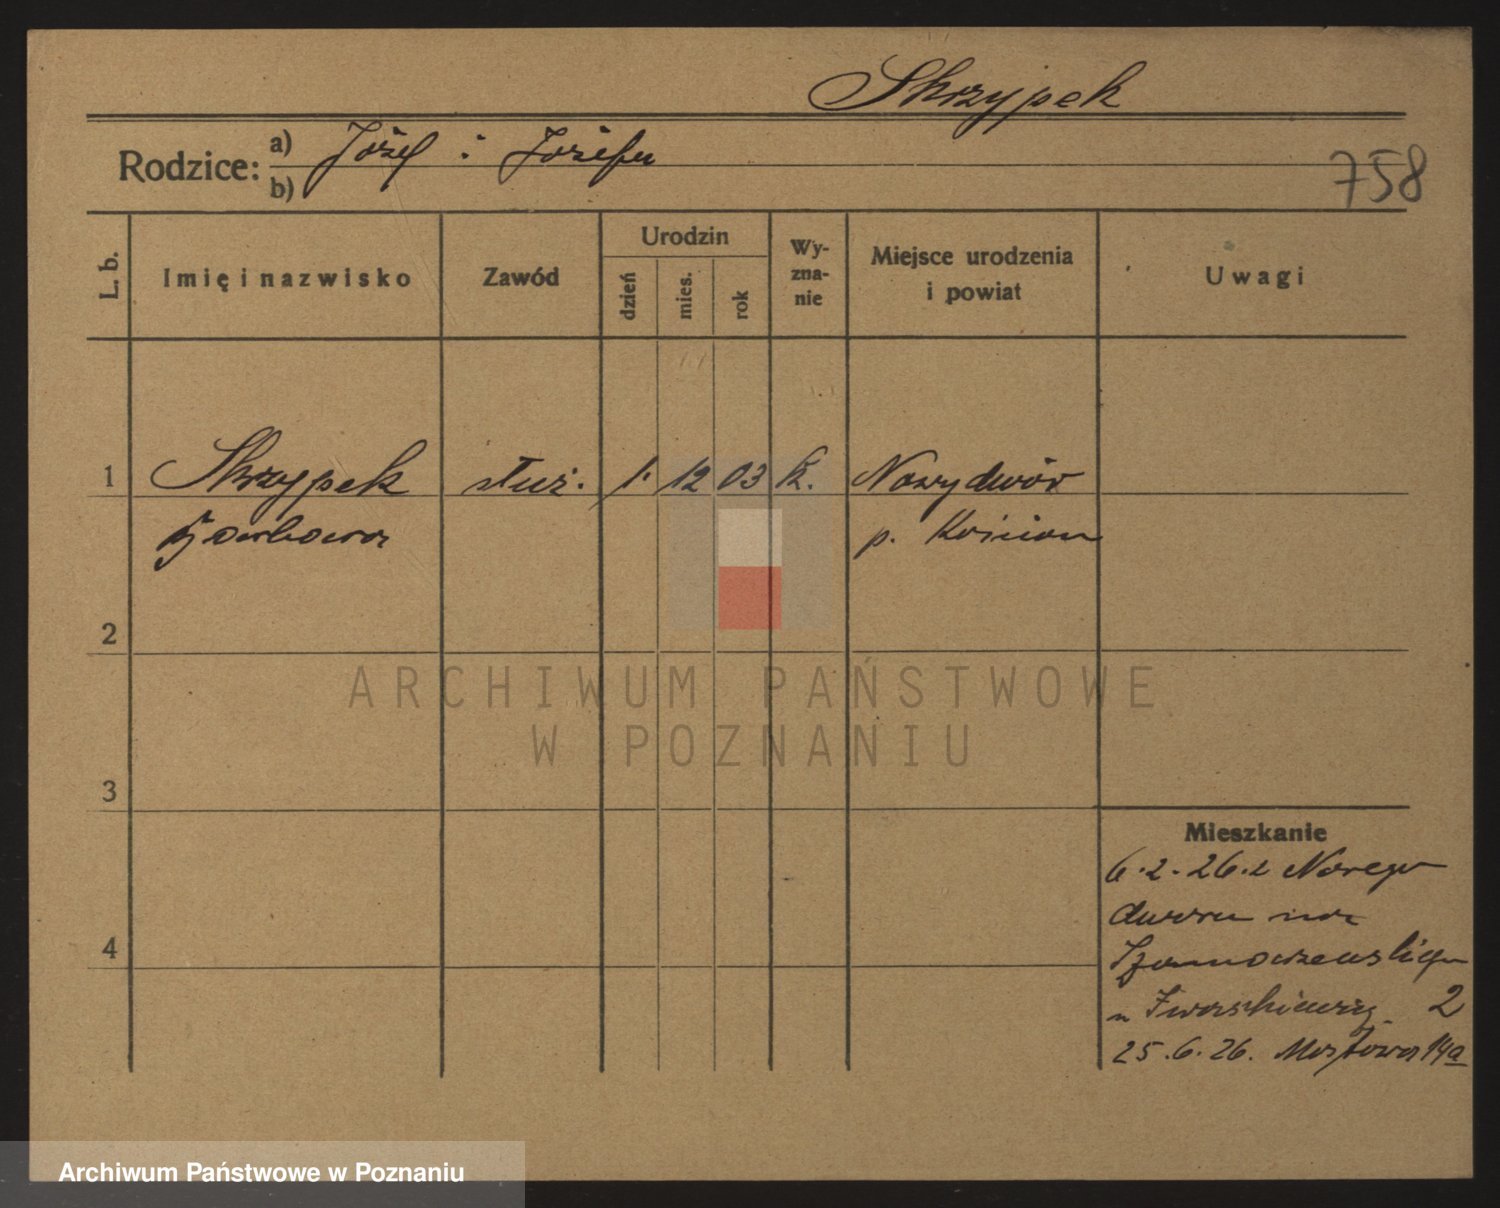 Skrzypek
Rodzice: a) Józef i Józefa
b)
758
L. b.
Imię i nazwisko
Zawód
Urodzin
dzień
mies.
rok
Wy-
zna-
nie
Miejsce urodzenia
i powiat
Uwagi
1 Skrzypek służ. 1. 12 03 k. Nowy dwór
p. Kościan
2
3
4
Mieszkanie
6.2.26. z Nowego
dworu
2
25.6.26. Mostowa 14a
ARCHIWUM PAŃSTWOWE
W POZNANIU
Archiwum Państwowe w Poznaniu